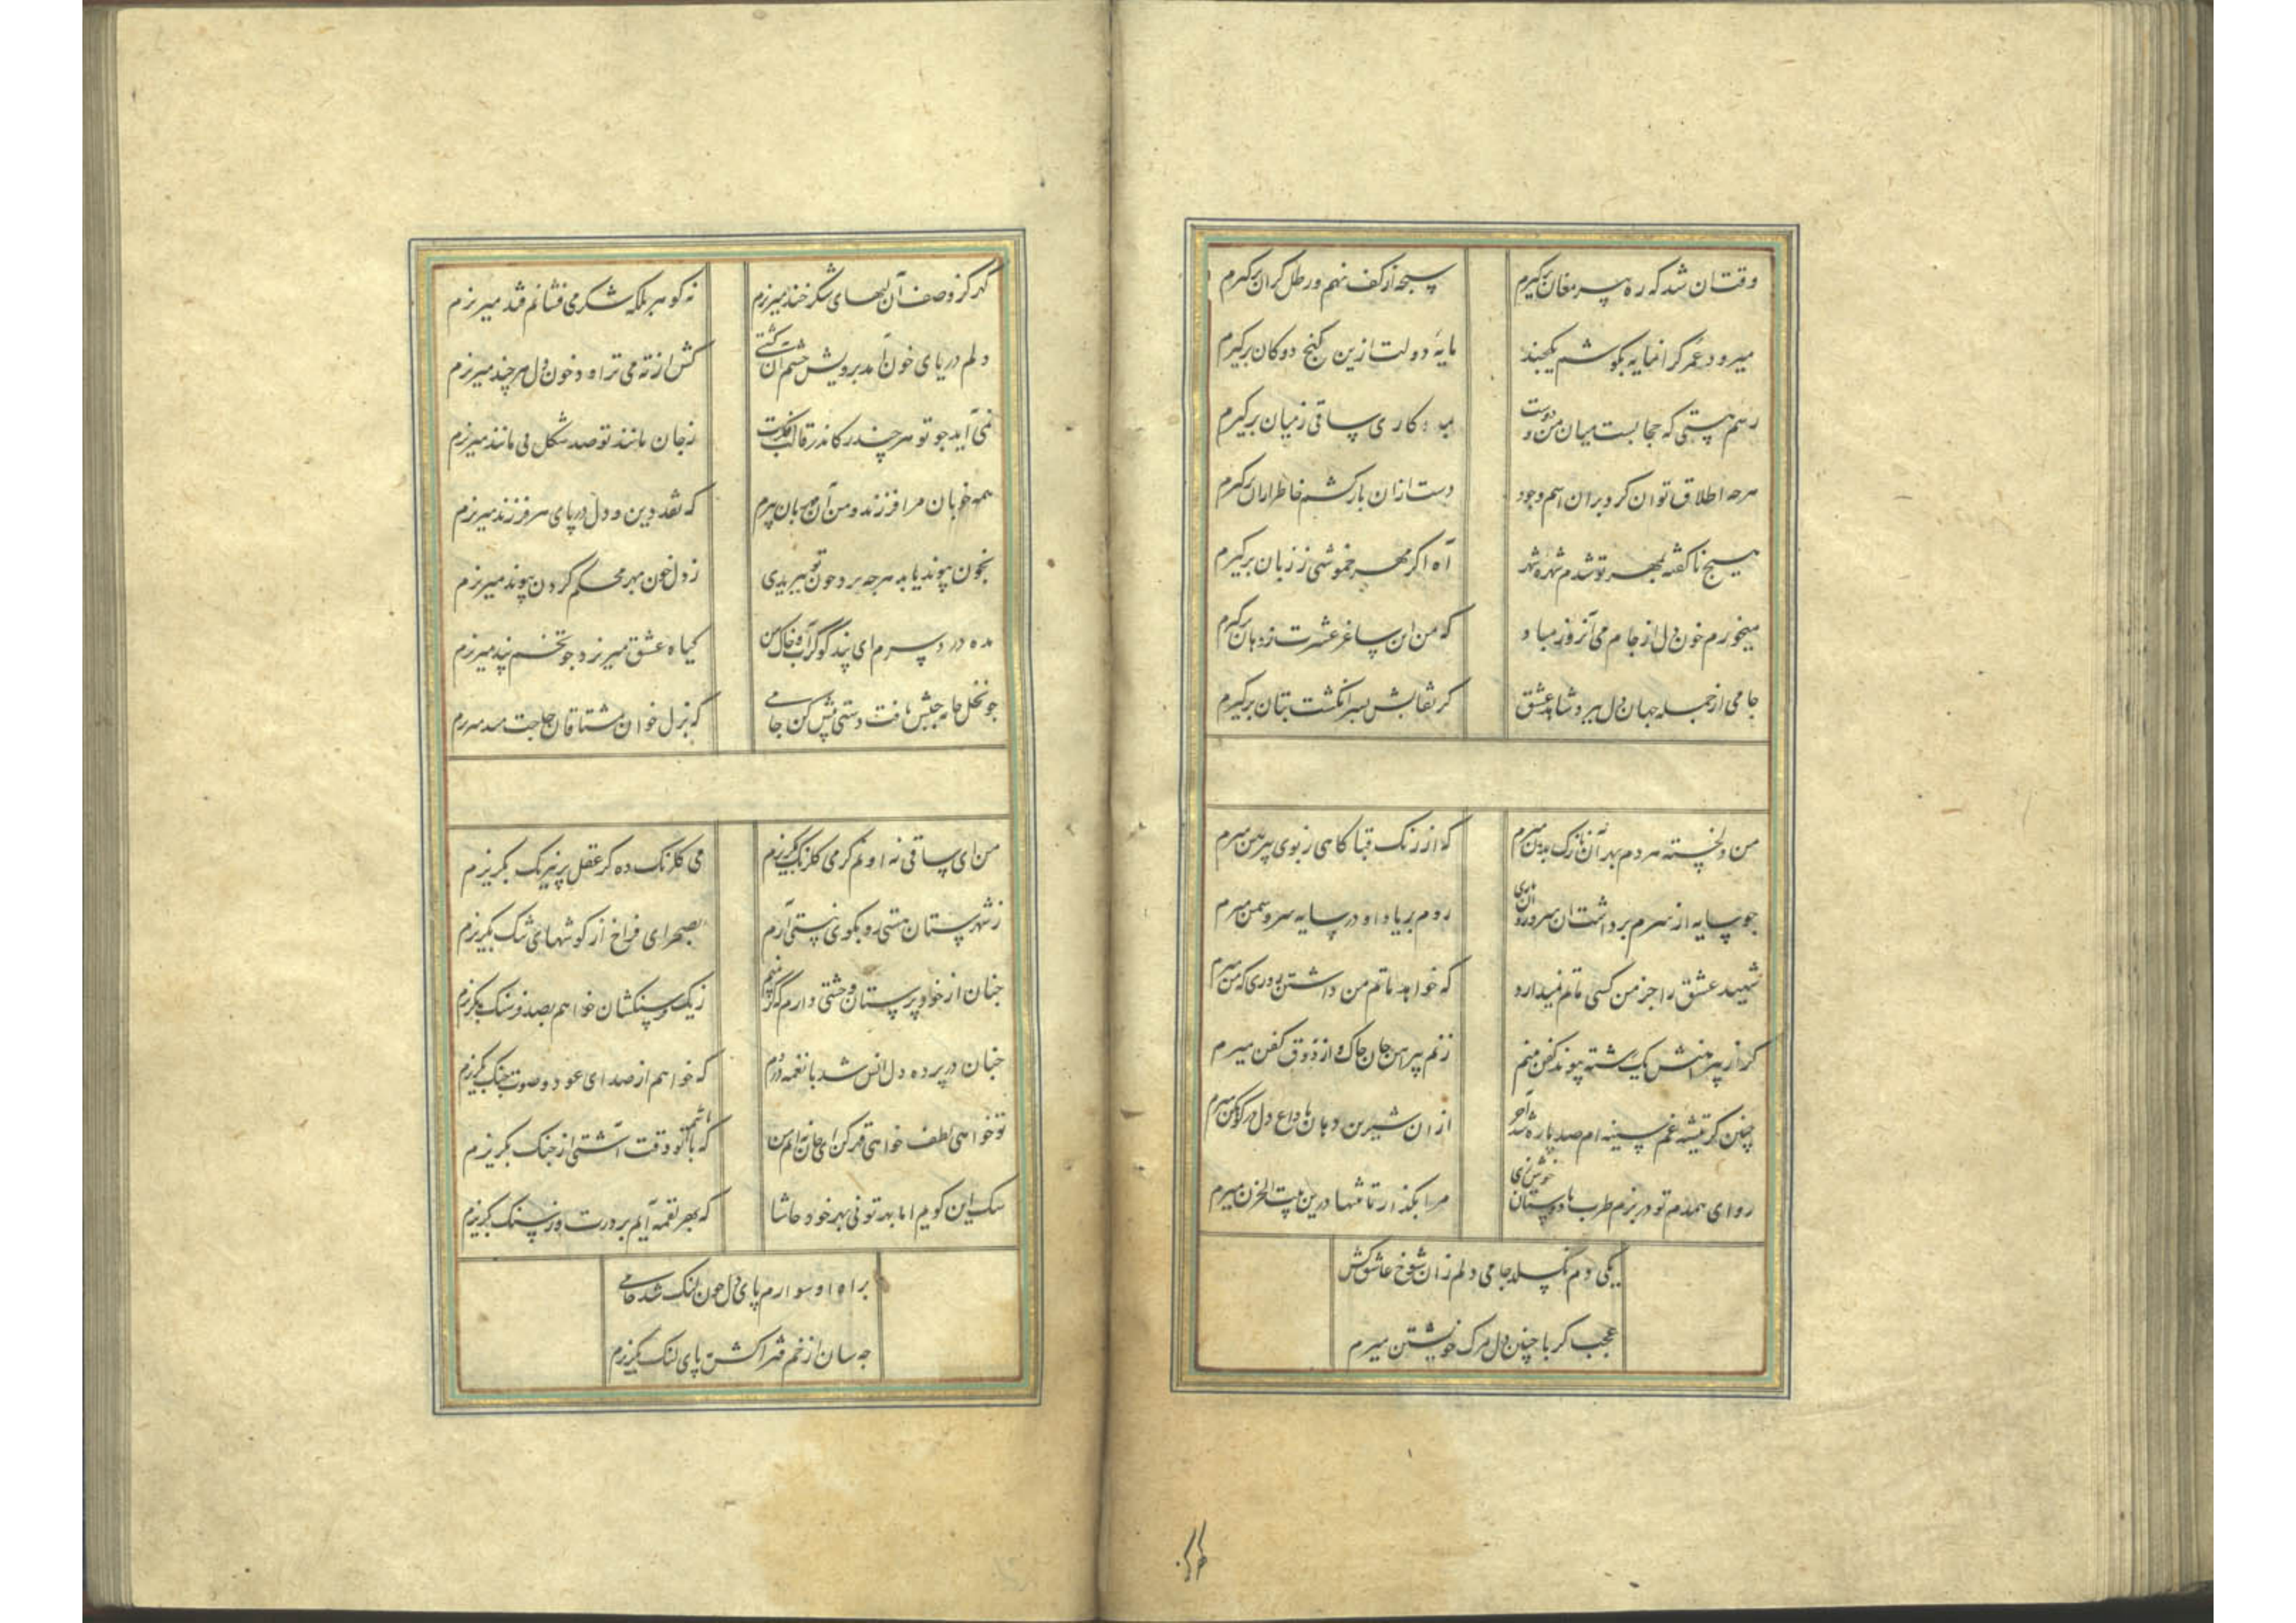 وقت آن شد که ره پیر مغان برگیرم
سبحه از کف نهم و رطل گران برگیرم
میرود عمر گرانمایه بکوشم یکچند
مایهٔ دولت ازین کنج دوکان برگیرم
رسم هستی که حجابست میان من و دوست
بمددکاری ساقی ز میان برگیرم
هرچه اطلاق توان کرد بران اسم وجود
دست ازان بازکشم خاطر ازان برگیرم
هیچ ناگفته بمهر تو شدم شهره شهر
آه اگر مهر خموشی ز زبان برگیرم
میخورم خون دل از جام می آنروز مباد
که من این ساغر عشرت ز دهان برگیرم
جامی از جمله جهان دل ببرد شاهد عشق
گر نقابش بسر انگشت بیان برگیرم
من دلخسته هردم بهر آن نازک بدن میرم
گه از رنگ قبا گاهی ز بوی پیرهن میرم
چو سایه از سرم برداشت آن سرو روان باری
روم بر یاد او در سایه سرو و سمن میرم
شهید عشق را جز من کسی ماتم نمیدارد
که خواهد ماتم من داشتن روزی که من میرم
گر از پیراهنش یک رشته پیوند کفن بینم
زنم پیراهن جان چاک و از ذوق کفن میرم
چنین کز تیشه غم سینه‌ام صد پاره شد آخر
ازان شیرین دهان با داغ دل چون کوهکن میرم
رو ای همدم تو در بزم طرب با دوستان خوش زی
مرا بگذار تا تنها درین بیت الحزن میرم
یکی دم نگسلد جامی دلم زان شوخ عاشق کش
عجب گر با چنین دل مرگ خویشتن میرم
گهر کز وصف آن لبهای شکر خند میریزم
نه گوهر بلکه شکر می‌فشانم قند میریزم
دلم دریای خون آمد برویش چشم آن کشتی
کش از ته می‌تراود خون دل هرچند میریزم
نمی‌آید چو تو هرچند کاندر قالب فکرت
ز جان مانند تو صد شکل بی مانند میریزم
همه خوبان مرا فرزند و من آن مهربان پیرم
که نقد دین و دل در پای هر فرزند میریزم
بخون پیوند یابد هرچه برد چون تو ببریدی
ز دل خون بهر محکم کردن پیوند میریزم
مده درد سرم ای پندگو کز آب و خاک من
گیاه عشق میریزد چو تخم پند میریزم
چو نخل خامه جنبش یافت دستی پیش کن جامی
که نزل خوان مشتاقان
من ای ساقی نه اویم کز می گلرنگ بگریزم
می گلرنگ ده کز عقل پر نیرنگ بگریزم
ز شهرستان هستی رو بکوی نیستی آرم
بصحرای فراخ از گوشهای تنگ بگریزم
چنان از خودپرستان وحشتی دارم که گر بینم
ز یک فرسنگشان خواهم بصد فرسنگ بگریزم
چنان در پرده دل انس شد با نغمه دردم
که خواهم از صدای عود و صوت چنگ بگریزم
تو خواهی لطف خواهی قهر کن ای جان که من
که باشم با تو وقت آشتی از جنگ بگریزم
سگ این کویم اما بهر تو نی بهر خود حاشا
که بهر لقمه آیم بر درت وز سنگ بگریزم
براه او سوارم پای دل چون لنگ شد جامی
چه سان از زخم فتراکش به پای لنگ بگریزم